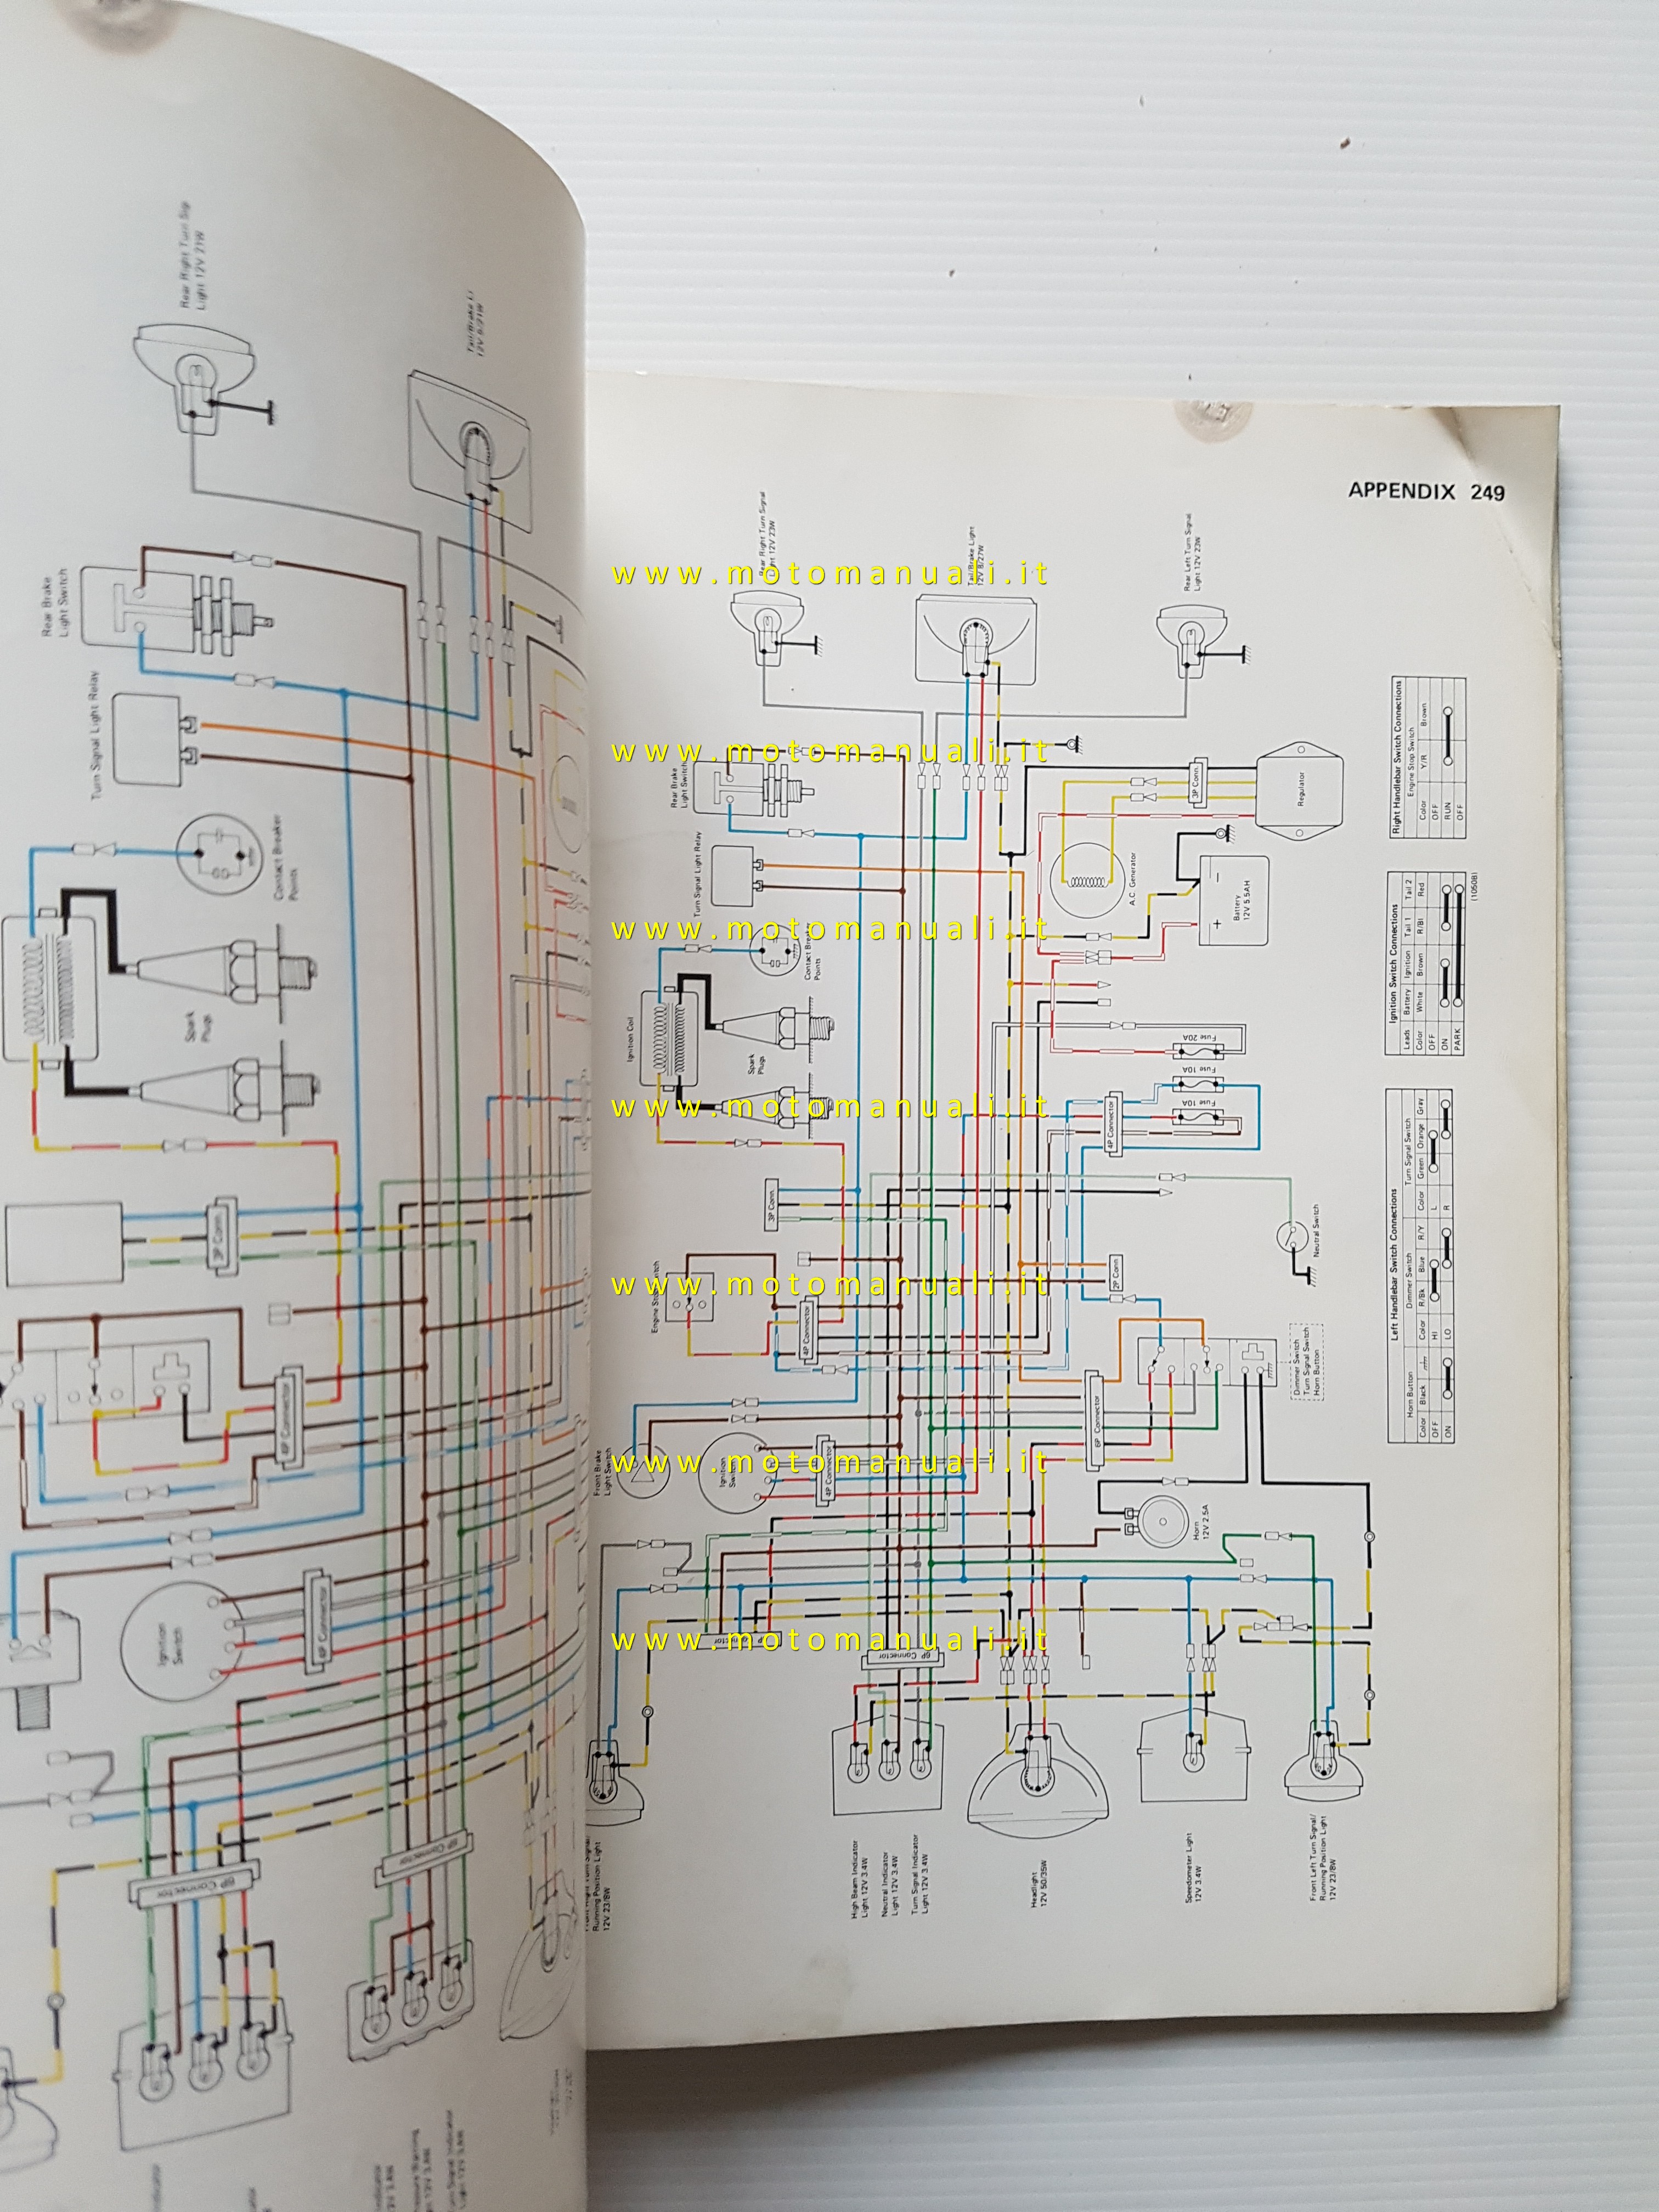 APPENDIX 249
Rear Right Turn Signal
Light 12V 23W
Tail/Brake Light
12V 8/27W
Rear Left Turn Signal
Light 12V 23W
Rear Brake
Light Switch
Turn Signal Light Relay
Ignition Coil
Contact Breaker
Points
Spark
Plugs
A.C. Generator
Battery
12V 5.5AH
Regulator
3P Conn.
Fuse 20A
Fuse 10A
Fuse 10A
4P Connector
3P Conn.
2P Conn
Neutral Switch
Engine Stop Switch
4P Connector
Front Brake
Light Switch
Ignition
Switch
4P Connector
6P Connector
Dimmer Switch
Turn Signal Switch
Horn Button
Horn
12V 2.5A
6P Connector
Running Position Light
12V 23/8W
High Beam Indicator
Light 12V 3.4W
Neutral Indicator
Light 12V 3.4W
Turn Signal Indicator
Light 12V 3.4W
Headlight
12V 50/35W
Speedometer Light
12V 3.4W
Front Left Turn Signal/
Running Position Light
12V 23/8W
Left Handlebar Switch Connections
Horn Button
Color Black
OFF
ON
Dimmer Switch
Color R/Bk Blue R/Y
HI
LO
Turn Signal Switch
Color Green Orange Gray
L
R
Ignition Switch Connections
Leads Battery Ignition Tail 1 Tail 2
Color White Brown R/Bl Red
OFF
ON
PARK
(1050B)
Right Handlebar Switch Connections
Engine Stop Switch
Color Y/R Brown
OFF
RUN
OFF
Rear Right Turn Sig
Light 12V 21W
Rear Brake
Light Switch
Turn Signal Light Relay
Contact Breaker
Points
Spark
Plugs
3P Conn.
6P Connector
Ignition
Switch
4P Connector
6P Connector
6P Connector
www.motomanuali.it
www.motomanuali.it
www.motomanuali.it
www.motomanuali.it
www.motomanuali.it
www.motomanuali.it
www.motomanuali.it